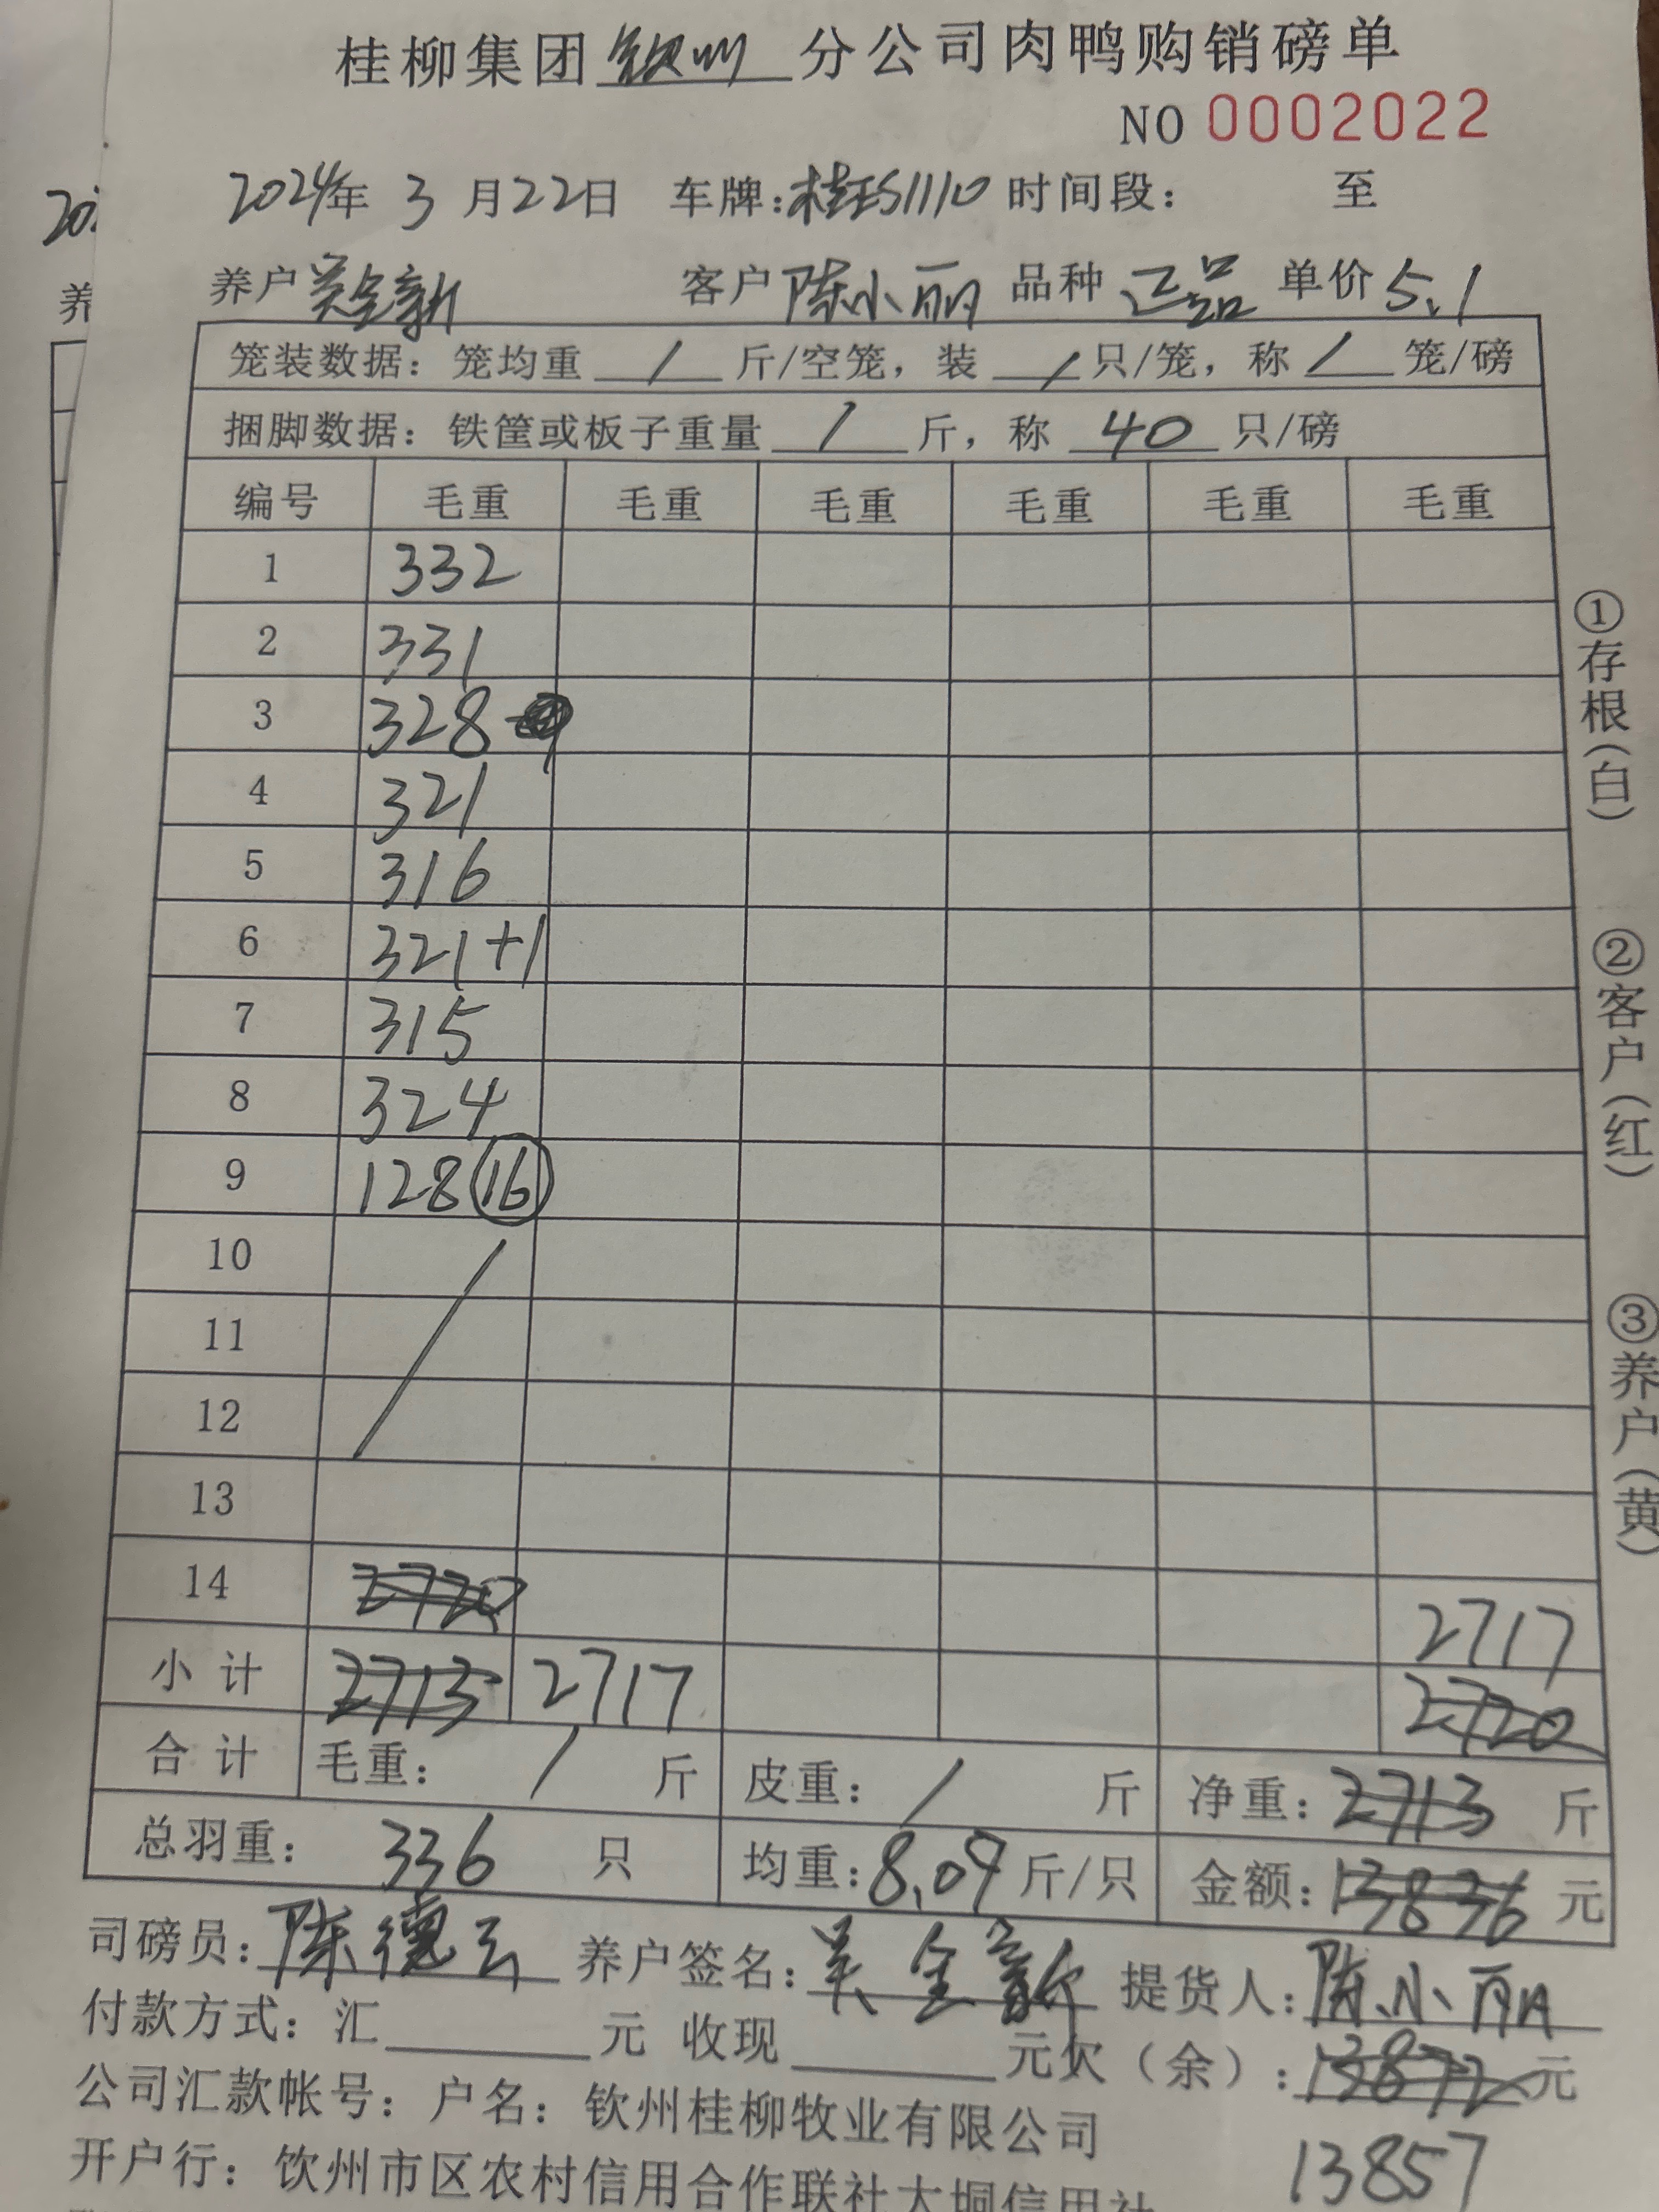 桂柳集团钦州分公司肉鸭购销磅单
NO 0002022
2024年 3 月22日 车牌: 时间段: 至
养户 吴全新 客户 陈小丽 品种 正品 单价 5.1
笼装数据: 笼均重 / 斤/空笼, 装 / 只/笼, 称 / 笼/磅
捆脚数据: 铁筐或板子重量 / 斤, 称 40 只/磅
编号 毛重 毛重 毛重 毛重 毛重 毛重
1 332
2 331
3 328
4 321
5 316
6 321+1
7 315
8 324
9 128 16
10
11
12
13
14 2720 2717
小计 2713 2717 2720
合计 毛重: / 斤 皮重: / 斤 净重: 2713 斤
总羽重: 336 只 均重: 8.09 斤/只 金额: 13836 元
司磅员: 陈德云 养户签名: 吴全新 提货人: 陈小丽
付款方式: 汇 元 收现 元 欠(余): 13872 元
公司汇款帐号: 户名: 钦州桂柳牧业有限公司
13857
开户行: 钦州市区农村信用合作联社大垌信用社
①存根(白)
②客户(红)
③养户(黄)